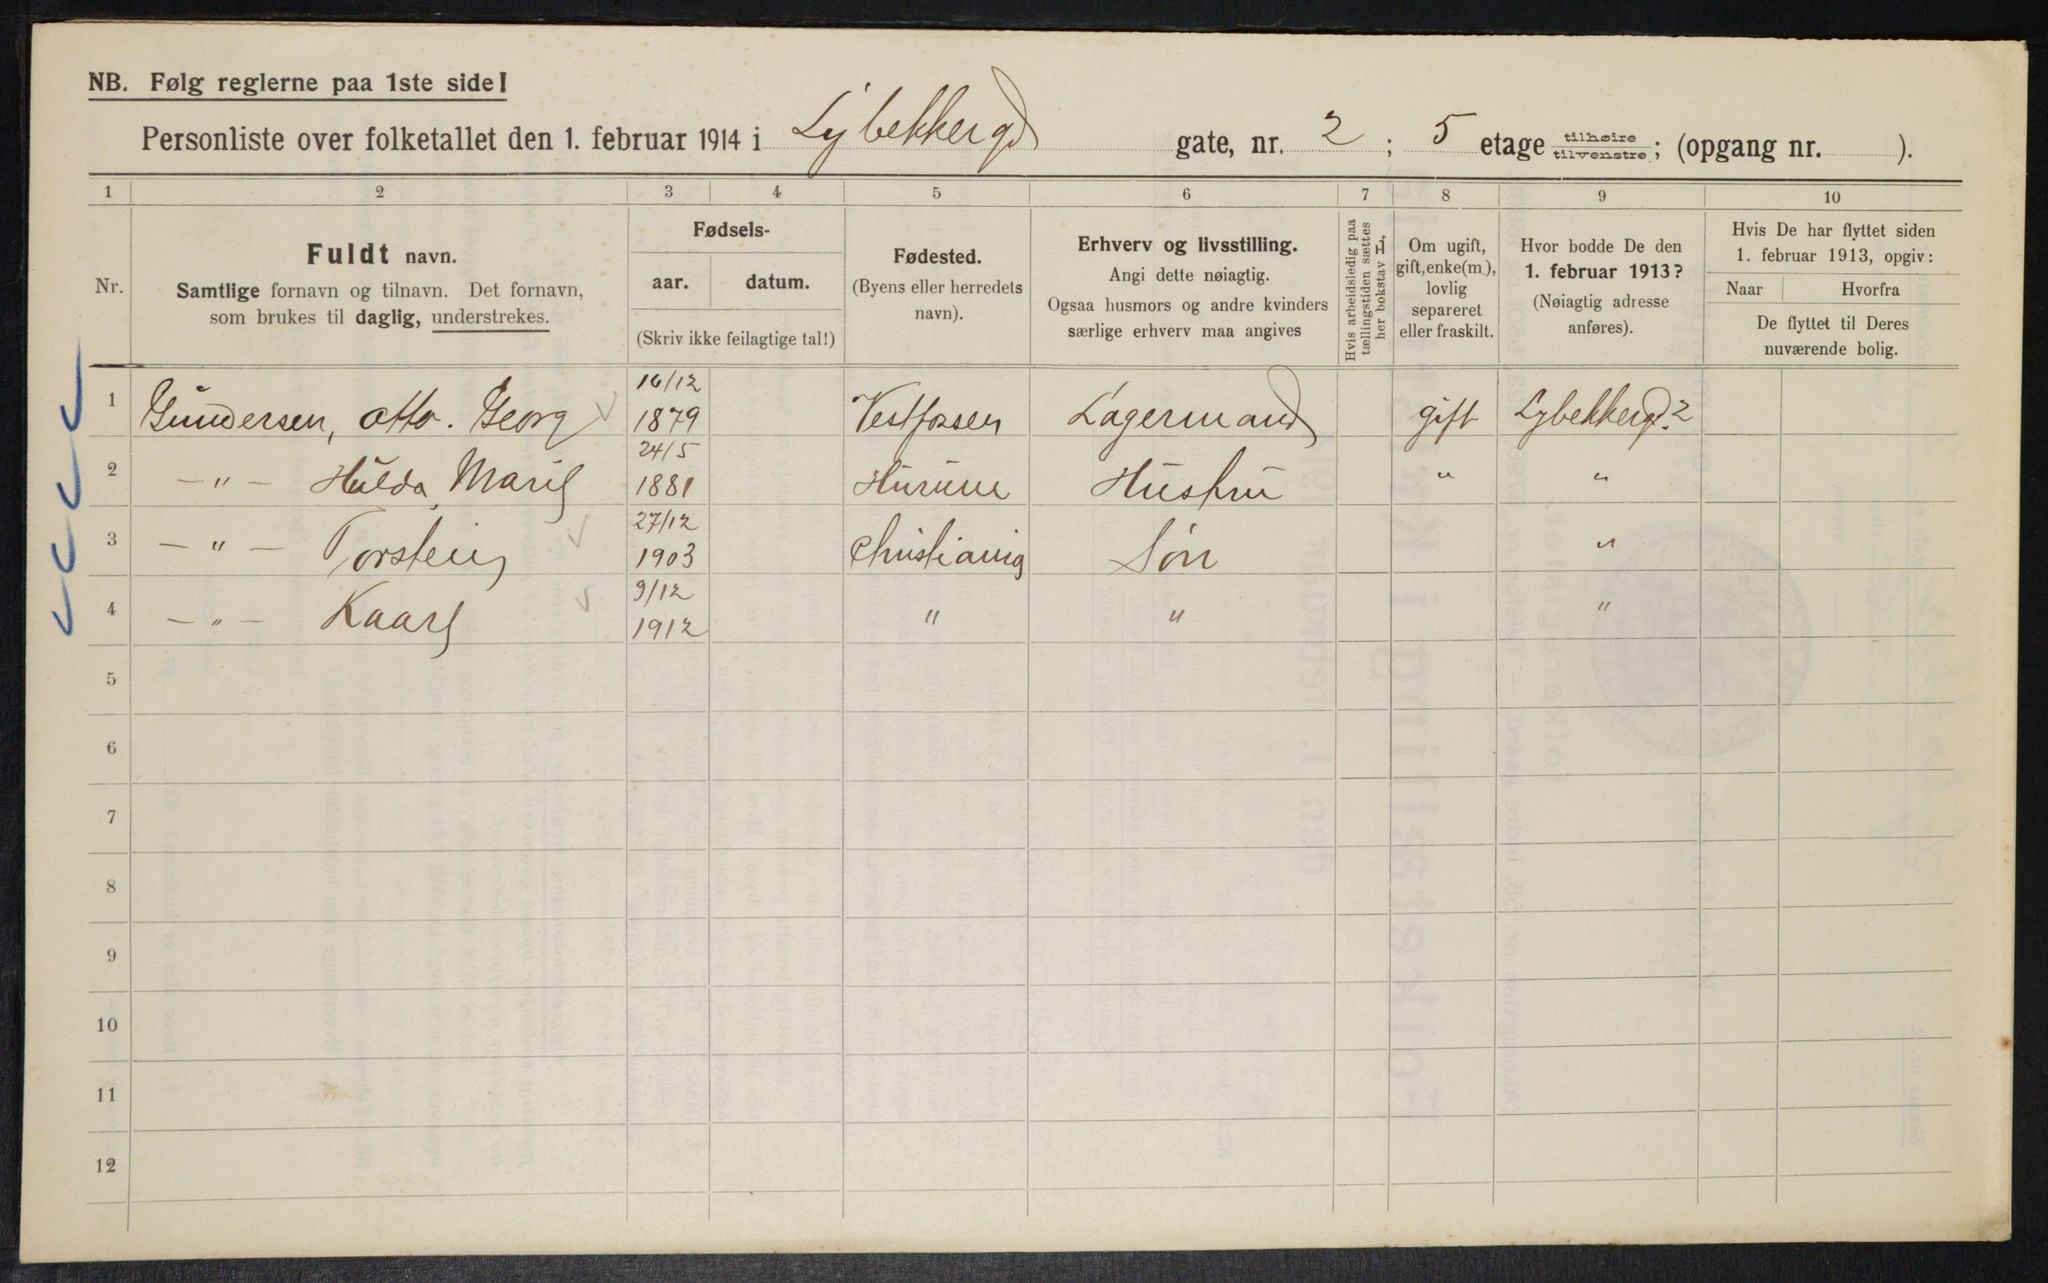 NB. Følg reglerne paa 1ste side!
Personliste over folketallet den 1. februar 1914 i Lybekkergd gate, nr. 2; 5 etage tilhøire/tilvenstre; (opgang nr. ).
1 2 3 4 5 6 7 8 9 10
Nr.
Fuldt navn.
Samtlige fornavn og tilnavn. Det fornavn,
som brukes til daglig, understrekes.
Fødsels-
aar. datum.
(Skriv ikke feilagtige tal!)
Fødested.
(Byens eller herredets
navn).
Erhverv og livsstilling.
Angi dette nøiagtig.
Ogsaa husmors og andre kvinders
særlige erhverv maa angives
Hvis arbeidsledig paa
tællingstiden sættes
her bokstav H,
Om ugift,
gift, enke(m.),
lovlig
separeret
eller fraskilt.
Hvor bodde De den
1. februar 1913?
(Nøiagtig adresse
anføres).
Hvis De har flyttet siden
1. februar 1913, opgiv:
Naar Hvorfra
De flyttet til Deres
nuværende bolig.
16/12
1 Gundersen, Otto. Georg 1879 Vestfossen Lagermand gift Lybekkergd. 2
24/5
2 — " — Hulda Marie 1881 Hurum Hustru " "
27/12
3 — " — Torstein 1903 Christiania Søn "
9/12
4 — " — Kaare 1912 " " "
5
6
7
8
9
10
11
12